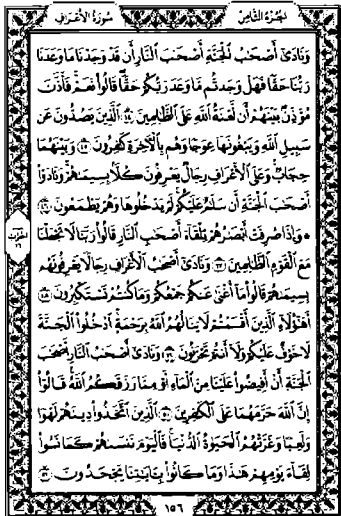 الجزء الثامن
سورة الأعراف
وَنَادَىٰ أَصْحَٰبُ الْجَنَّةِ أَصْحَٰبَ النَّارِ أَن قَدْ وَجَدْنَا مَا وَعَدَنَا
رَبُّنَا حَقًّا فَهَلْ وَجَدتُّم مَّا وَعَدَ رَبُّكُمْ حَقًّا قَالُوا نَعَمْ فَأَذَّنَ
مُؤَذِّنٌ بَيْنَهُمْ أَن لَّعْنَةُ اللَّهِ عَلَى الظَّٰلِمِينَ ﴿٤٤﴾ الَّذِينَ يَصُدُّونَ عَن
سَبِيلِ اللَّهِ وَيَبْغُونَهَا عِوَجًا وَهُم بِالْآخِرَةِ كَٰفِرُونَ ﴿٤٥﴾ وَبَيْنَهُمَا
حِجَابٌ وَعَلَى الْأَعْرَافِ رِجَالٌ يَعْرِفُونَ كُلًّا بِسِيمَىٰهُمْ وَنَادَوْا
أَصْحَٰبَ الْجَنَّةِ أَن سَلَٰمٌ عَلَيْكُمْ لَمْ يَدْخُلُوهَا وَهُمْ يَطْمَعُونَ ﴿٤٦﴾
۞ وَإِذَا صُرِفَتْ أَبْصَٰرُهُمْ تِلْقَاءَ أَصْحَٰبِ النَّارِ قَالُوا رَبَّنَا لَا تَجْعَلْنَا
مَعَ الْقَوْمِ الظَّٰلِمِينَ ﴿٤٧﴾ وَنَادَىٰ أَصْحَٰبُ الْأَعْرَافِ رِجَالًا يَعْرِفُونَهُم
بِسِيمَىٰهُمْ قَالُوا مَا أَغْنَىٰ عَنكُمْ جَمْعُكُمْ وَمَا كُنتُمْ تَسْتَكْبِرُونَ ﴿٤٨﴾
أَهَٰؤُلَاءِ الَّذِينَ أَقْسَمْتُمْ لَا يَنَالُهُمُ اللَّهُ بِرَحْمَةٍ ادْخُلُوا الْجَنَّةَ
لَا خَوْفٌ عَلَيْكُمْ وَلَا أَنتُمْ تَحْزَنُونَ ﴿٤٩﴾ وَنَادَىٰ أَصْحَٰبُ النَّارِ أَصْحَٰبَ
الْجَنَّةِ أَنْ أَفِيضُوا عَلَيْنَا مِنَ الْمَاءِ أَوْ مِمَّا رَزَقَكُمُ اللَّهُ قَالُوا
إِنَّ اللَّهَ حَرَّمَهُمَا عَلَى الْكَٰفِرِينَ ﴿٥٠﴾ الَّذِينَ اتَّخَذُوا دِينَهُمْ لَهْوًا
وَلَعِبًا وَغَرَّتْهُمُ الْحَيَوٰةُ الدُّنْيَا فَالْيَوْمَ نَنسَىٰهُمْ كَمَا نَسُوا
لِقَاءَ يَوْمِهِمْ هَٰذَا وَمَا كَانُوا بِـَٔايَٰتِنَا يَجْحَدُونَ ﴿٥١﴾
١٥٦